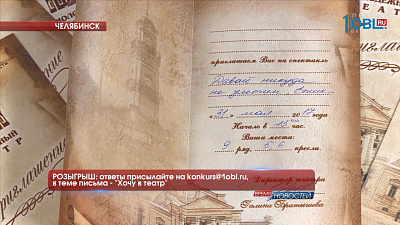 ЧЕЛЯБИНСК
1OBL.RU
приглашаем Вас на спектакль
Давай никуда
не улетим
"31" мая 2017 года
Начало в 18 00 час.
Ваши места:
9 ряд. 5,6 кресла.
Директор театра
Галина Братышева
Приглашение
РОЗЫГРЫШ: ответы присылайте на konkurs@1obl.ru,
в теме письма - "Хочу в театр"
НОВОСТЕЙ